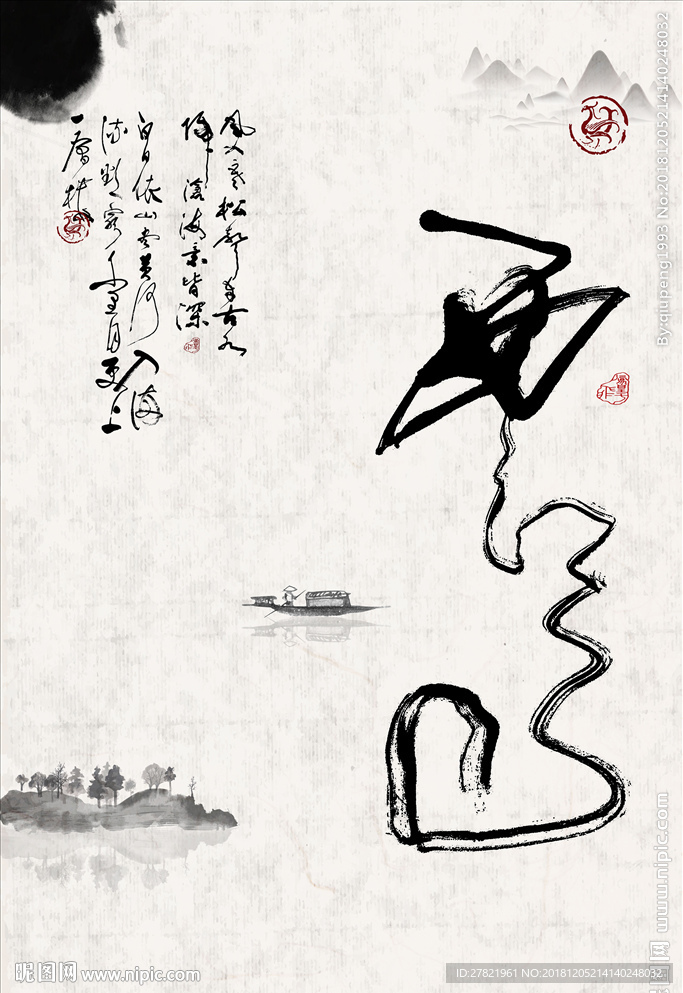 風入寒松聲自古水
歸滄海意皆深
白日依山尽黄河入海
流欲窮千里目更上
一層樓
By:qiupeng1993 No:20181205214140248032
昵图网 www.nipic.com
昵图网 www.nipic.com
ID:27821961 NO:20181205214140248032